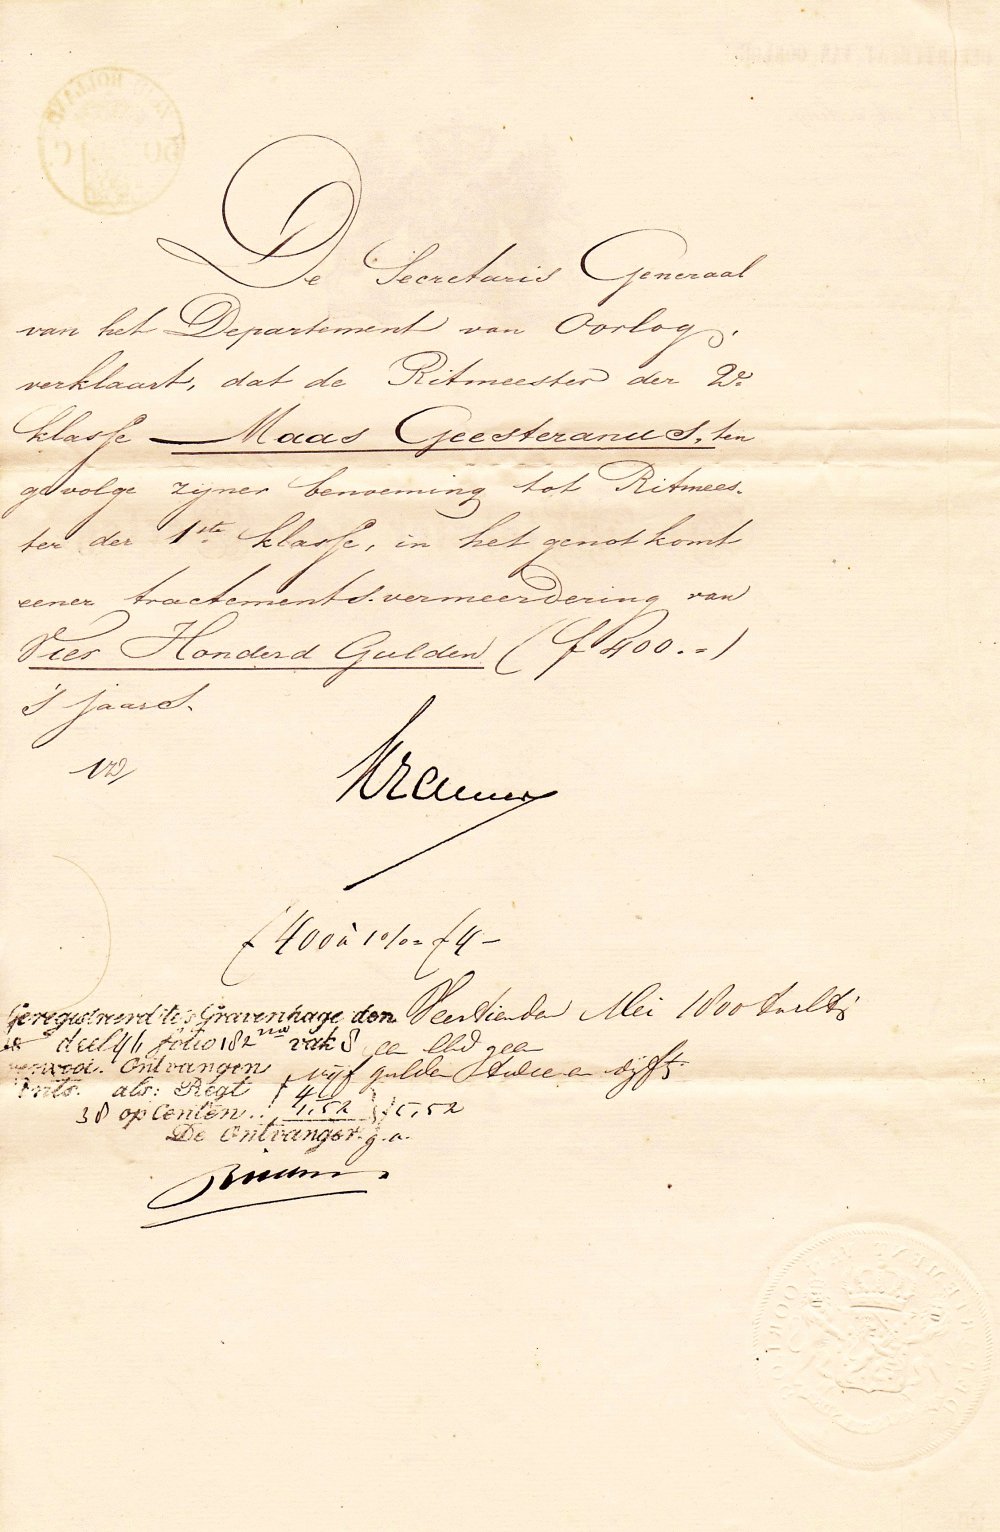 De Secretaris Generaal
van het Departement van Oorlog,
verklaart, dat de Ritmeester der 2e
klasse Maas Geesteranus, ten
gevolge zijner benoeming tot Ritmees-
ter der 1ste klasse, in het genot komt
eener tractements-vermeerdering van
Vier Honderd Gulden (f 400.=)
's jaars.
f 400 à 1% = f 4 –
Geregistreerd te 's Gravenhage den Veertienden Mei 1800
deel 46 folio 182 vak 8 een blad geen
Ontvangen vijf gulden twee en vijftig
als: Regt f 4
38 opCenten 1,52 f 5,52
De Ontvanger
OORLOG